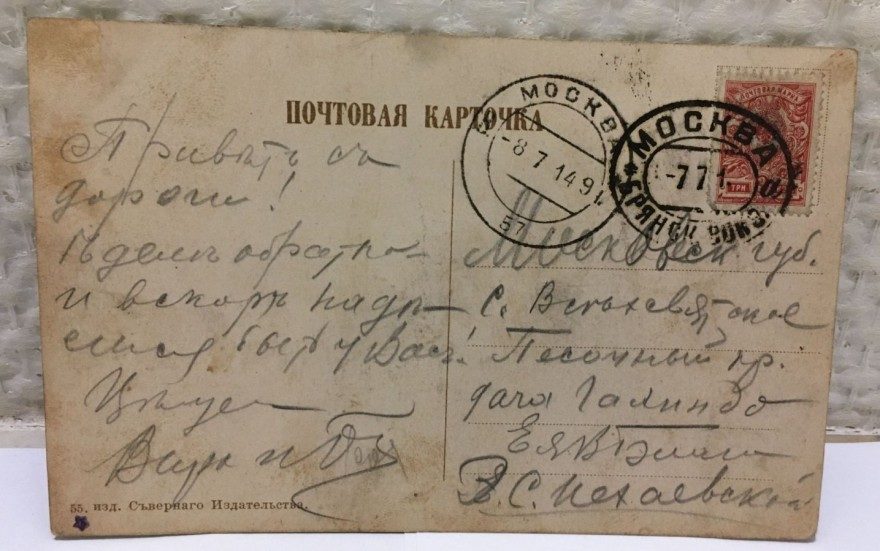 ПОЧТОВАЯ КАРТОЧКА
МОСКВА
-8 7 14 9
57
МОСКВА
-7 7 1
БРЯНСК. ВОКЗ.
ПОЧТОВАЯ МАРКА
ТРИ
Привѣтъ съ
дороги!
Ѣдемъ обратно
и вскорѣ надѣ-
емся быть у Васъ.
Цѣлуем
Варя и
Московск губ.
с. Всѣхсвятское
Песочный пр.
дача Галиндо
Ея В
В. С.
55. изд. Сѣвернаго Издательства.